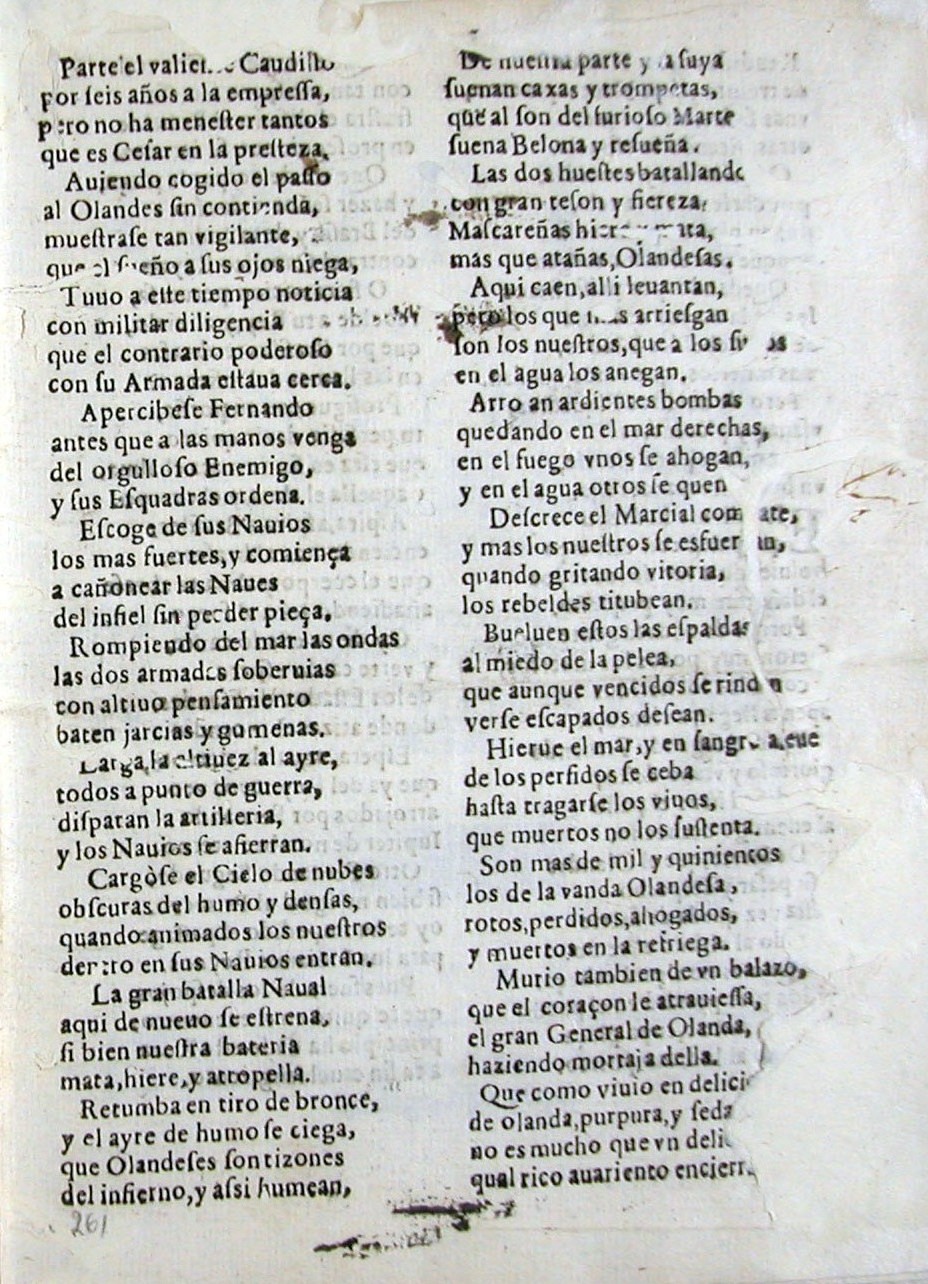 Parte el valiet. Caudillo
por ſeis años a la empreſſa,
pero no ha meneſter tantos
que es Ceſar en la preſteza.
Auiendo cogido el paſſo
al Olandes ſin contienda,
mueſtraſe tan vigilante,
que el ſueño a ſus ojos niega,
Tuuo a eſte tiempo noticia
con militar diligencia
que el contrario poderoſo
con ſu Armada eſtaua cerca.
Apercibeſe Fernando
antes que a las manos venga
del orgulloſo Enemigo,
y ſus Eſquadras ordena.
Eſcoge de ſus Nauios
los mas fuertes, y comiença
a cañonear las Naues
del infiel ſin perder pieça.
Rompiendo del mar las ondas
las dos armadas ſoberuias
con altiuo penſamiento
baten jarcias y gumenas.
Larga la altiuez al ayre,
todos a punto de guerra,
diſparan la artilleria,
y los Nauios ſe afierran.
Cargòſe el Cielo de nubes
obſcuras del humo y denſas,
quando animados los nueſtros
dentro en ſus Nauios entran.
La gran batalla Naual
aqui de nueuo ſe eſtrena,
ſi bien nueſtra bateria
mata, hiere, y atropella.
Retumba en tiro de bronce,
y el ayre de humo ſe ciega,
que Olandeſes ſon tizones
del infierno, y aſsi humean,
261
De nueſtra parte y la ſuya
ſuenan caxas y trompetas,
que al ſon del furioſo Marte
ſuena Belona y reſueña.
Las dos hueſtes batallando
con gran teſon y fiereza,
Maſcareñas hiere y mata,
mas que atañas, Olandeſas.
Aqui caen, alli leuantan,
pero los que mas arrieſgan
ſon los nueſtros, que a los ſuyos
en el agua los anegan.
Arro an ardientes bombas
quedando en el mar derechas,
en el fuego vnos ſe ahogan,
y en el agua otros ſe quen
Deſcrece el Marcial com ate,
y mas los nueſtros ſe esfuer an,
quando gritando vitoria,
los rebeldes titubean.
Bueluen eſtos las eſpaldas
al miedo de la pelea,
que aunque vencidos ſe rindan
verſe eſcapados deſean.
Hierue el mar, y en ſangre aleue
de los perfidos ſe ceba
haſta tragarſe los viuos,
que muertos no los ſuſtenta.
Son mas de mil y quinientos
los de la vanda Olandeſa,
rotos, perdidos, ahogados,
y muertos en la refriega.
Murio tambien de vn balazo,
que el coraçon le atrauieſſa,
el gran General de Olanda,
haziendo mortaja della.
Que como viuio en delici
de olanda, purpura, y ſeda
no es mucho que vn deli
qual rico auariento encierr.